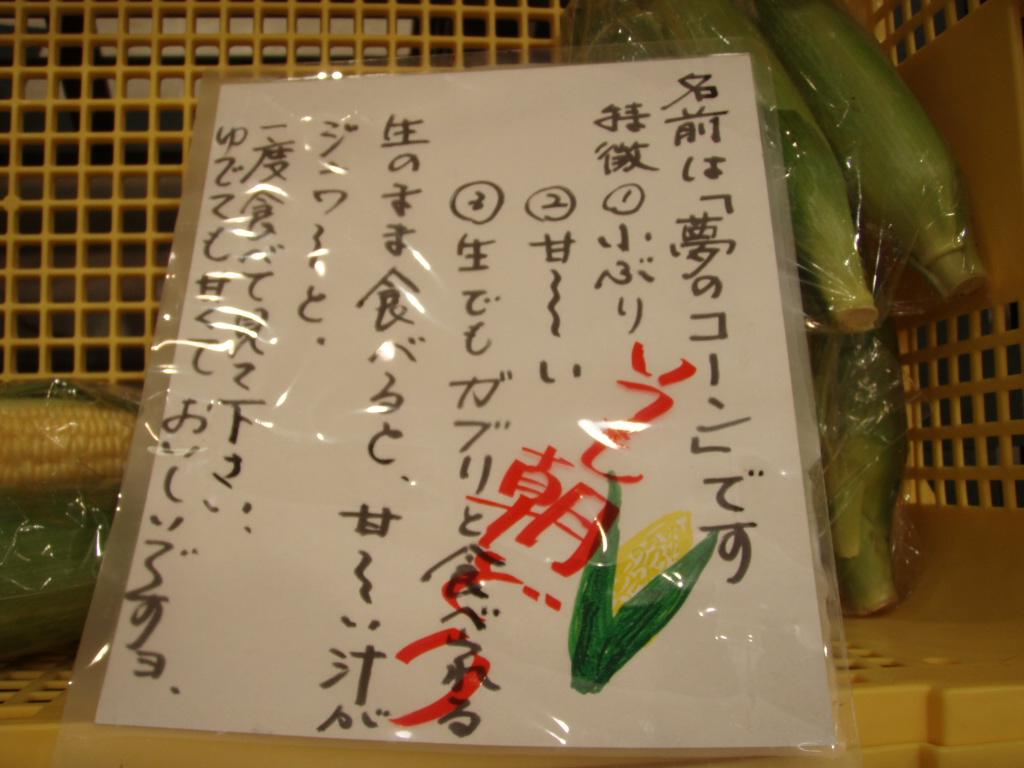 名前は「夢のコーン」です
特徴①小ぶり
②甘～い
③生でもガブリと食べられる
生のまま食べると、甘～い汁が
ジュワ～と．
一度食べて見て下さい、
ゆでても甘くておいしいですヨ、
朝